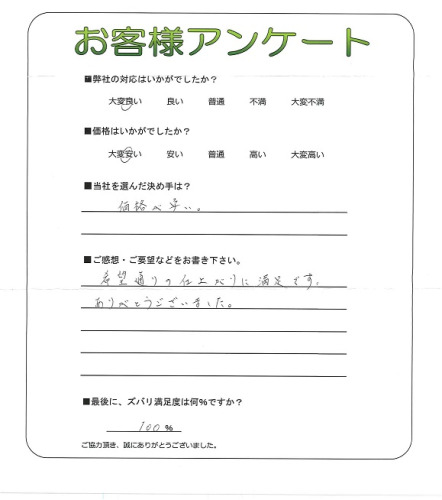 お客様アンケート
■弊社の対応はいかがでしたか？
大変良い 良い 普通 不満 大変不満
■価格はいかがでしたか？
大変安い 安い 普通 高い 大変高い
■当社を選んだ決め手は？
価格が安い。
■ご感想・ご要望などをお書き下さい。
希望通りの仕上がりに満足です。
ありがとうございました。
■最後に、ズバリ満足度は何%ですか？
100 %
ご協力頂き、誠にありがとうございました。